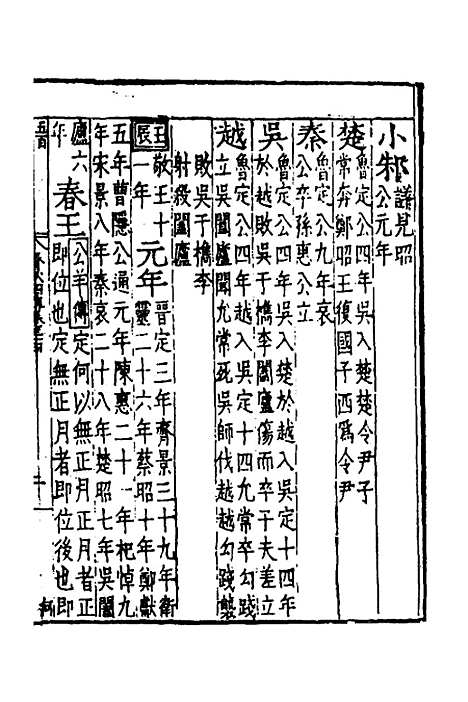 小邾譜見昭
公元年
楚魯定公四年吳入楚楚令尹子
常奔鄭昭王復國子西為令尹
秦魯定公九年哀
公卒孫惠公立
吳魯定公四年吳入楚於越入吳定十四年
於越敗吳于檇李闔廬傷而卒子夫差立
越魯定公四年越入吳定十四允常卒勾踐
立吳闔廬聞允常死吳師伐越越勾踐襲
敗吳于檇李
射殺闔廬
壬辰敬王十
一年元年晉定三年齊景三十九年衛
靈二十六年蔡昭十年鄭獻
五年曹隱公通元年陳惠二十一年杞悼九
年宋景八年秦哀二十八年楚昭七年吳闔
廬六
年春王公羊傳定何以無正月正月者正
即位也定無正月者即位後也即
晉